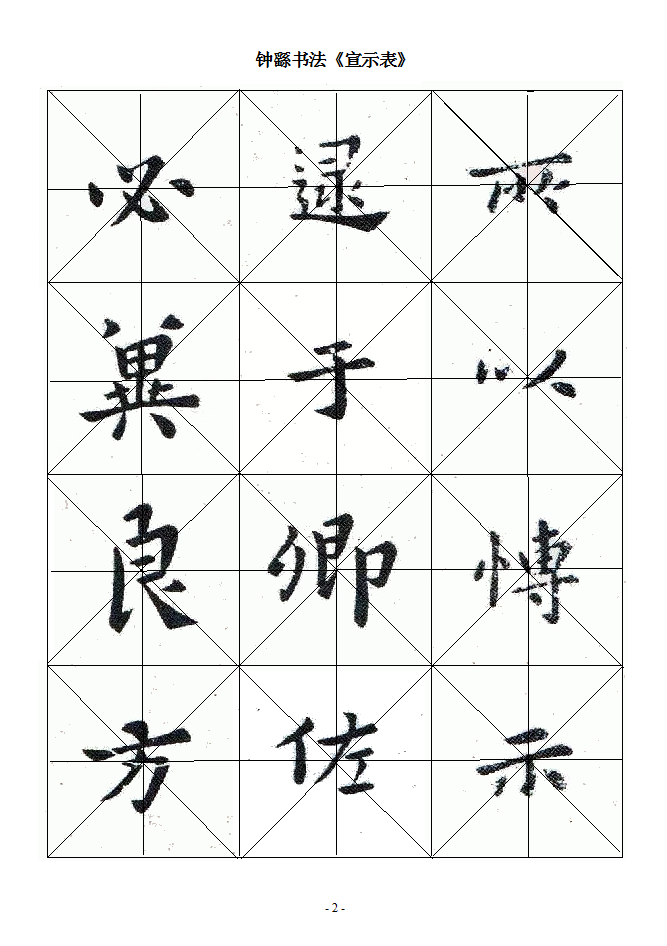 钟繇书法《宣示表》
所以愽示
逮于卿佐
必冀良方
- 2 -